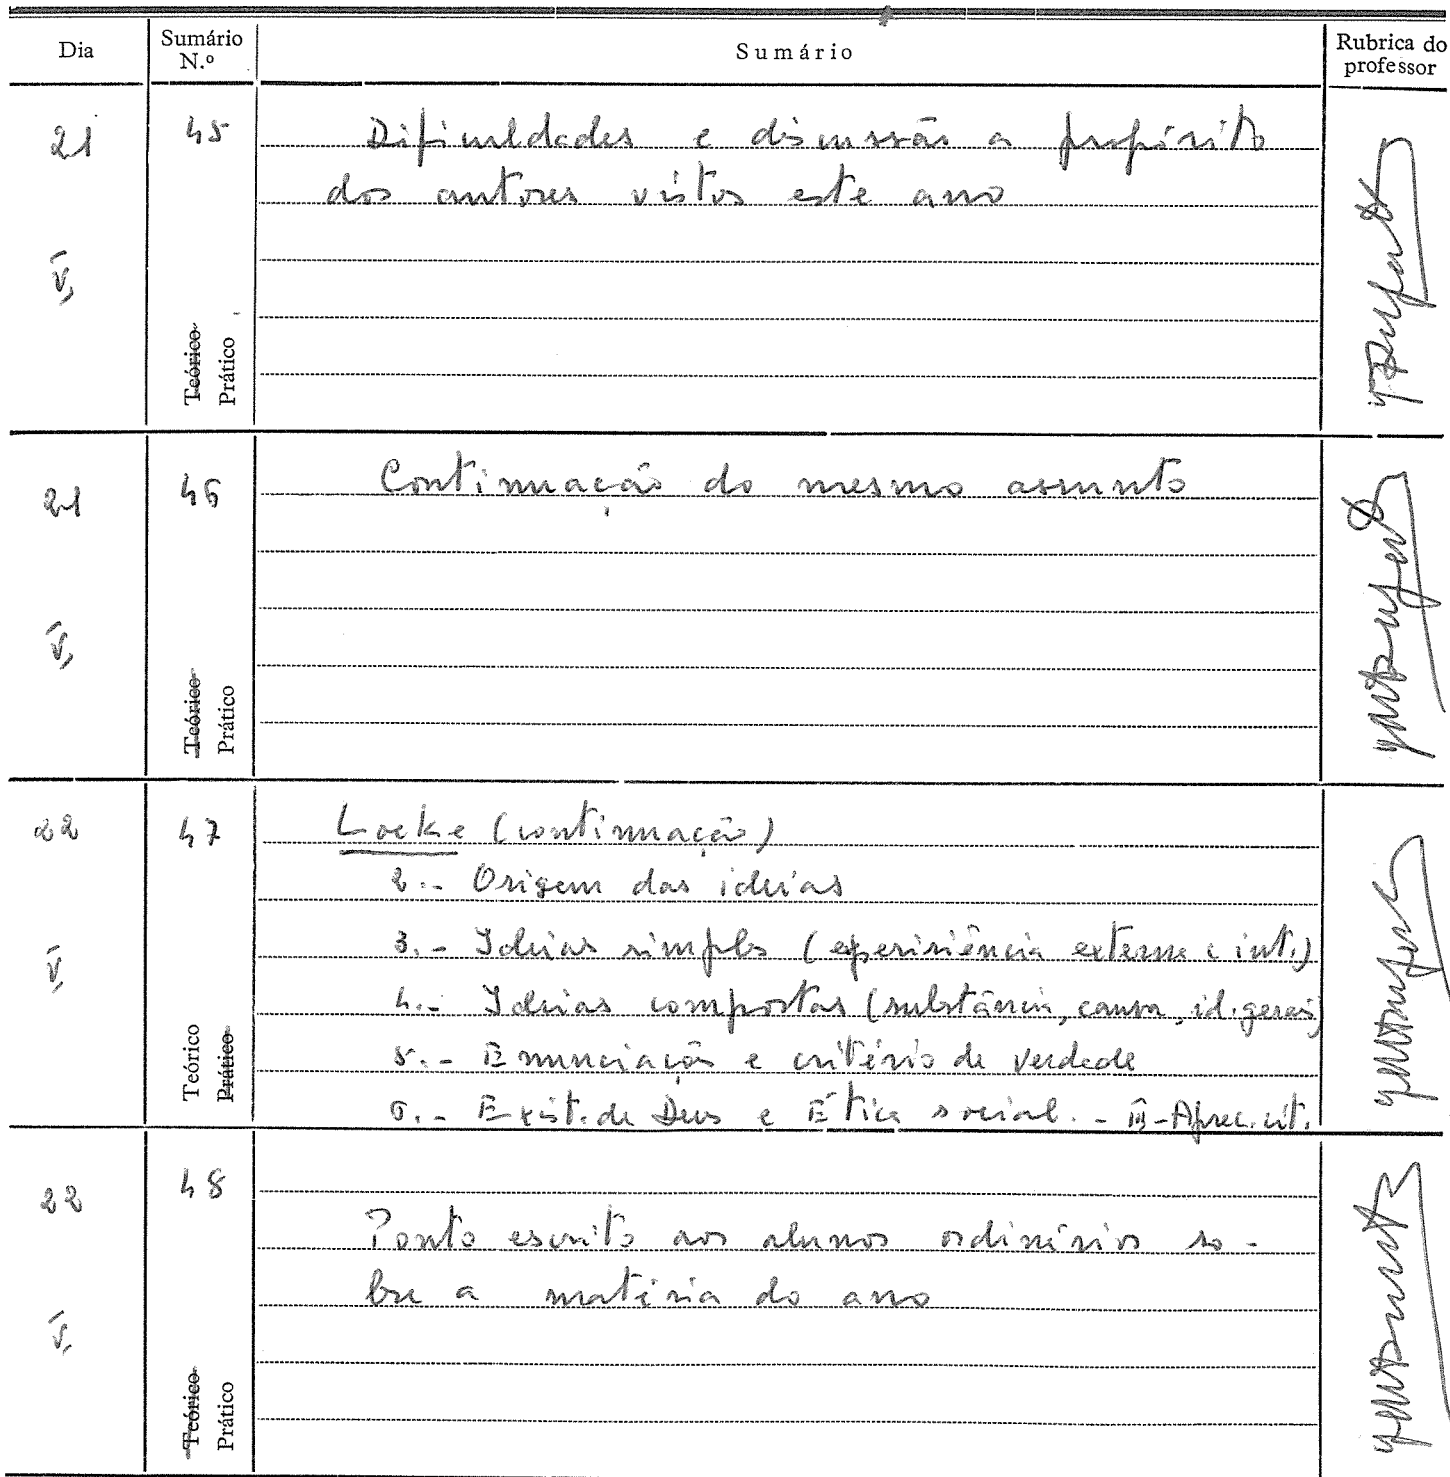 Dia
Sumário N.º
Sumário
Rubrica do professor
21
45
Dificuldades e discussão a propósito
dos autores vistos este ano
V,
Teórico
Prático
21
46
Continuação do mesmo assunto
V,
Teórico
Prático
22
47
Locke (continuação)
2.- Origem das ideias
3.- Ideias simples (experiência externa e int.)
4.- Ideias compostas (substância, causa, id. gerais)
5.- Enunciação e critério de verdade
6.- Exist. de Deus e Ética social. - III-Aprec. crít.
V,
Teórico
Prático
22
48
Ponto escrito aos alunos ordinários so-
bre a matéria do ano
V,
Teórico
Prático